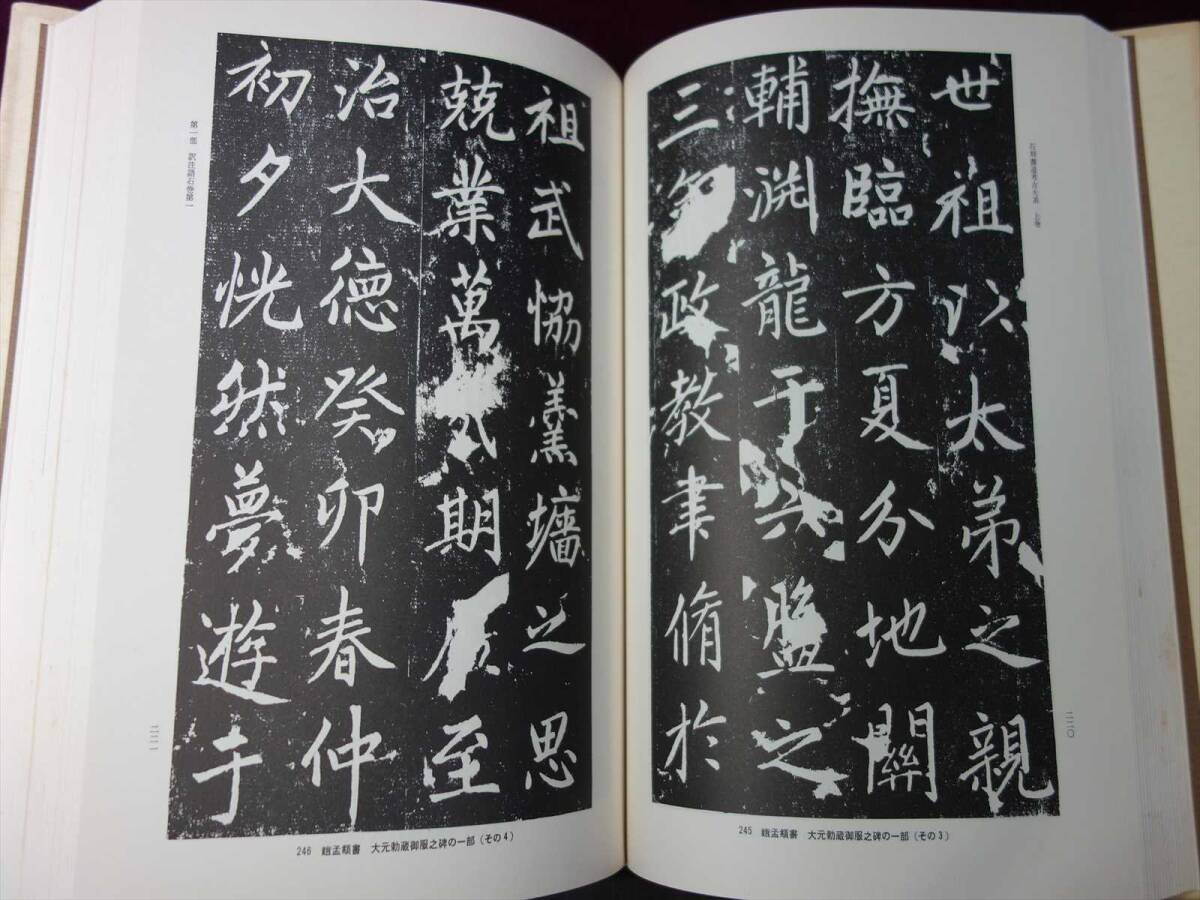 石刻書道考古大系 上巻
世祖以太弟之親
撫臨方夏分地關
輔淵龍于六盤之
三年政教聿脩於
二二〇
245 趙孟頫書 大元勅蔵御服之碑の一部(その3)
祖武恊羹墻之思
兢業萬几期底至
治大德癸卯春仲
初夕恍然夢遊于
第一部 訳注語石巻第一
二二一
246 趙孟頫書 大元勅蔵御服之碑の一部(その4)